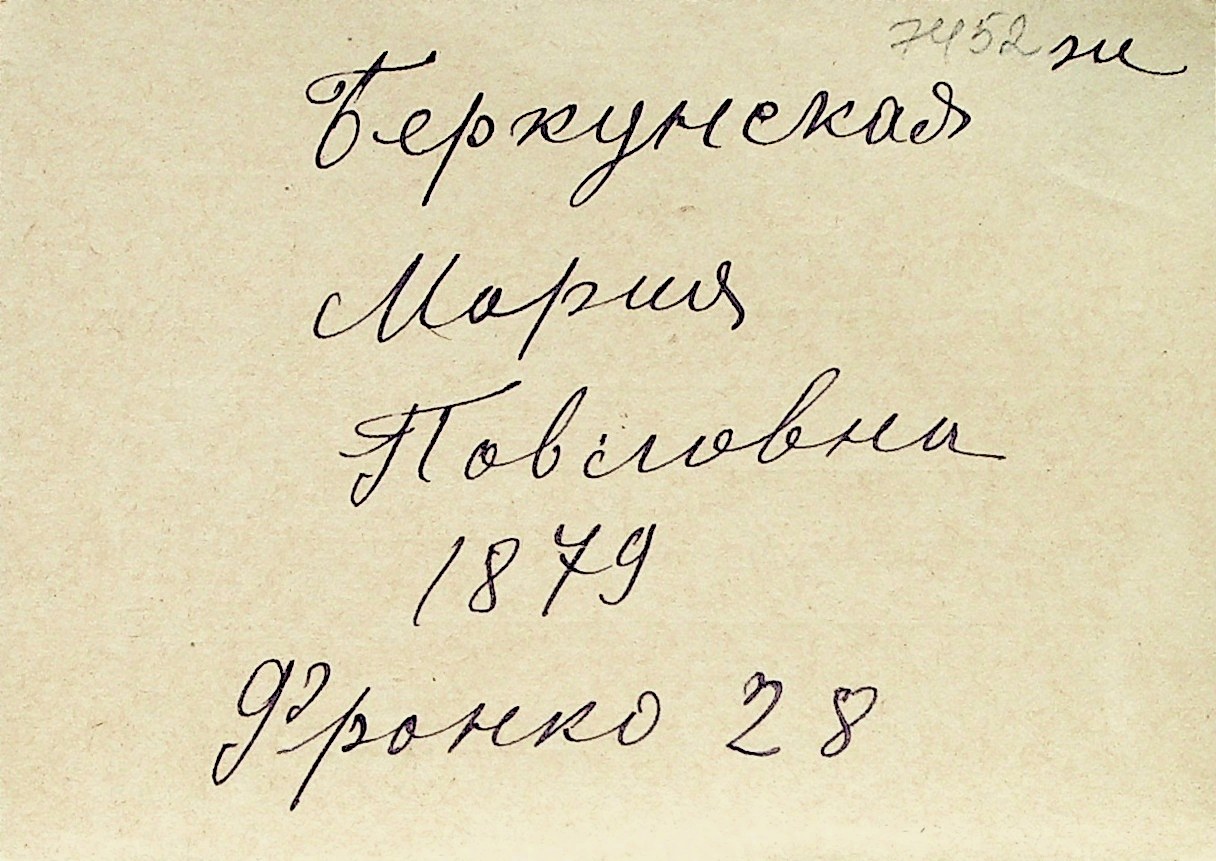 7452 ж
Беркунская
Мария
Павловна
1879
Франко 28